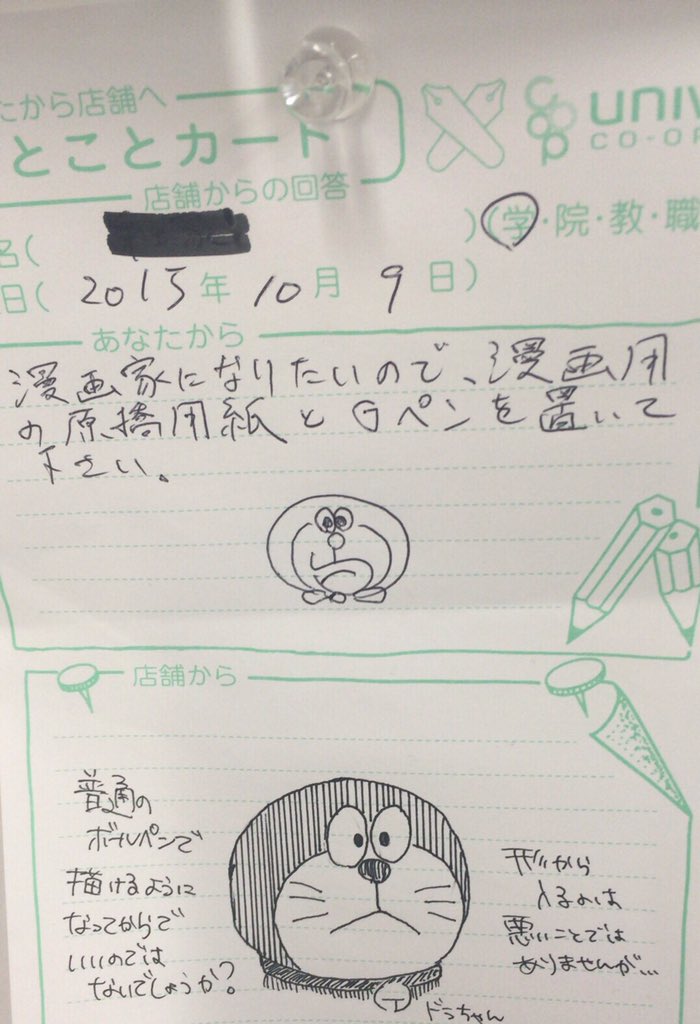 たから店舗へ
とことカード
univ
co-op
店舗からの回答
名( )(学・院・教・職
日( 2015年 10月 9日)
あなたから
漫画家になりたいので、漫画用
の原橋用紙とGペンを置いて
下さい。
店舗から
普通の
ボールペンで
描けるように
なってからで
いいのでは
ないでしょうか?
形から
入るのは
悪いことでは
ありませんが…
ドラちゃん